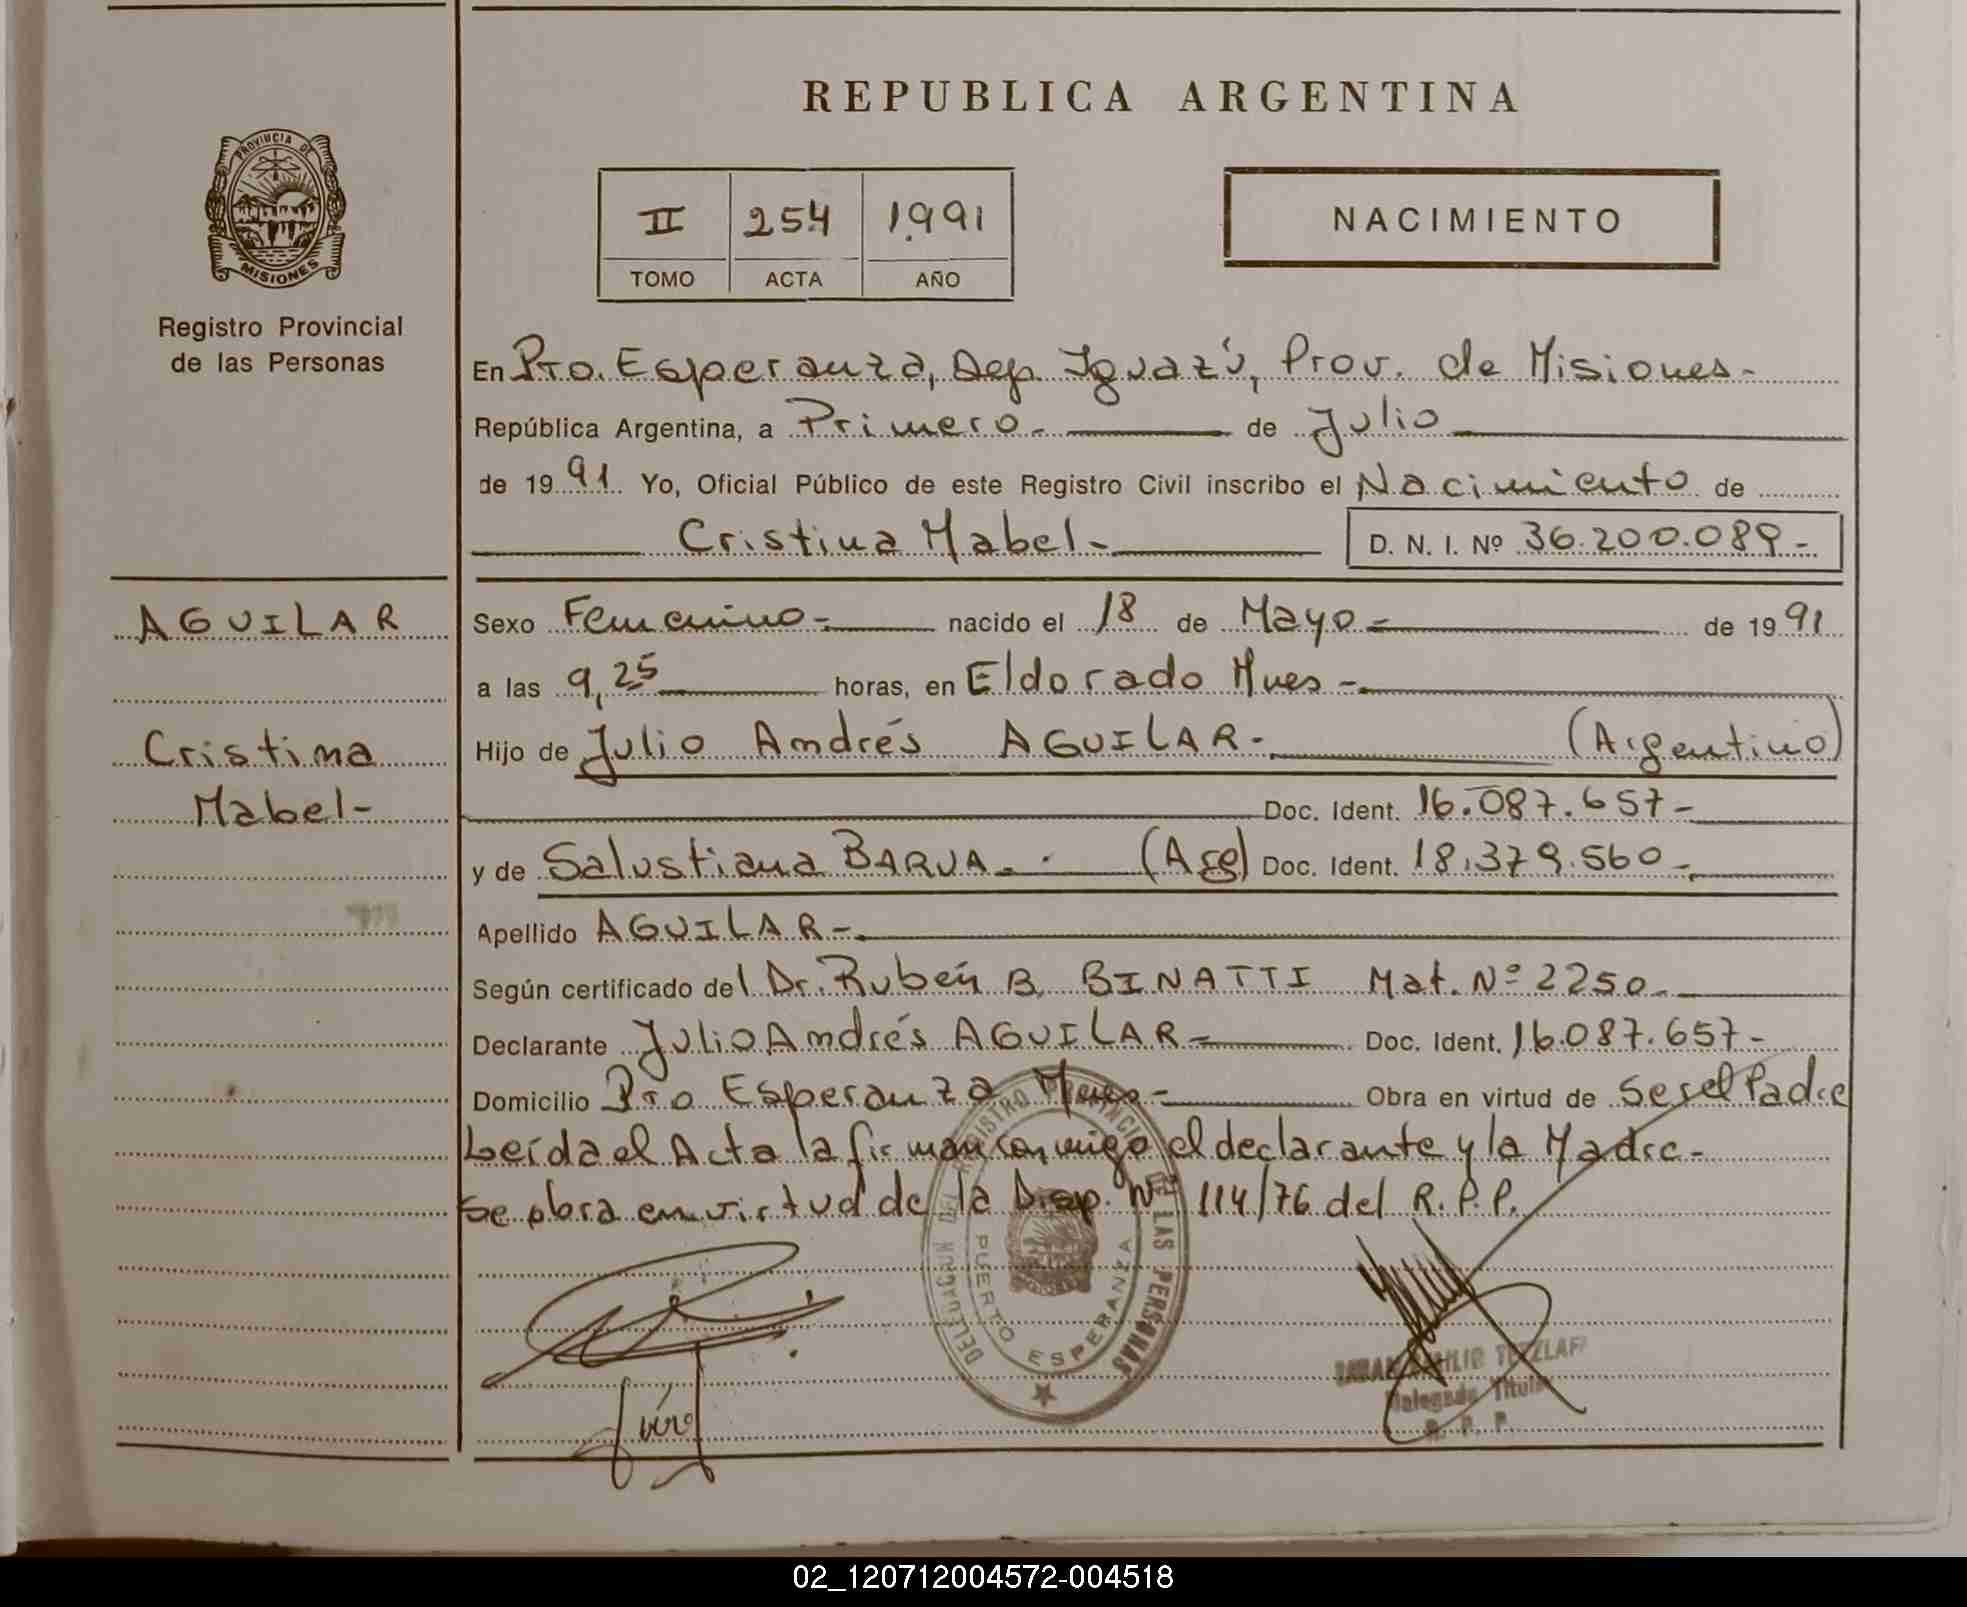 REPUBLICA ARGENTINA
PROVINCIA DE
MISIONES
Registro Provincial
de las Personas
II 254 1991
TOMO ACTA AÑO
NACIMIENTO
En Pto. Esperanza, Dep. Iguazú, Prov. de Misiones-
República Argentina, a Primero- de Julio
de 1991 Yo, Oficial Público de este Registro Civil inscribo el Nacimiento de
Cristina Mabel- D. N. I. Nº 36.200.089-
AGUILAR
Cristina
Mabel-
Sexo Femenino- nacido el 18 de Mayo- de 1991
a las 9,25 horas, en Eldorado Mnes-
Hijo de Julio Andrés AGUILAR- (Argentino)
Doc. Ident. 16.087.657-
y de Salustiana BARUA- (Arg) Doc. Ident. 18.379.560-
Apellido AGUILAR-
Según certificado del Dr. Rubén B. BINATTI Mat. Nº 2250-
Declarante Julio Andrés AGUILAR- Doc. Ident. 16.087.657-
Domicilio Pto Esperanza Mnes- Obra en virtud de Ser el Padre
Leída el Acta la firman conmigo el declarante y la Madre-
Se obra en virtud de la Disp. Nº 114/76 del R.P.P.
DELEGACION DEL REGISTRO PROVINCIAL DE LAS PERSONAS
PUERTO ESPERANZA
Delegado Titular
R. P. P.
02_120712004572-004518